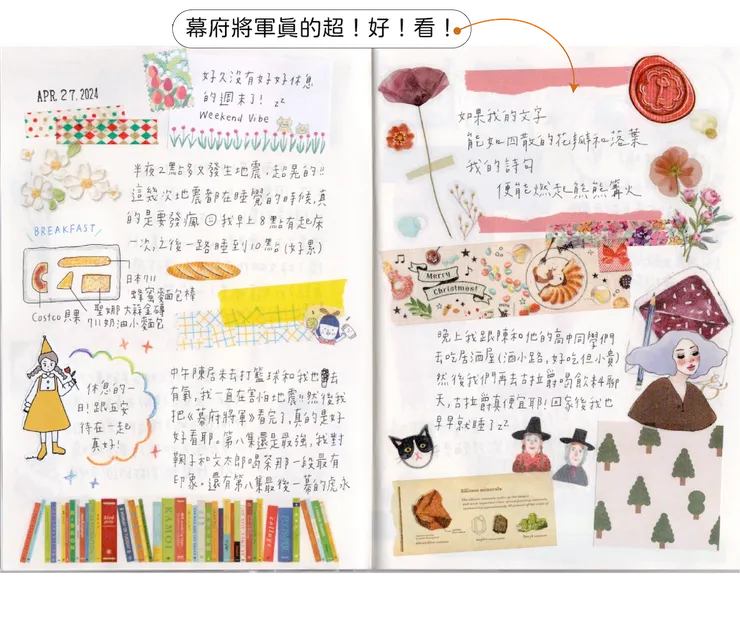 幕府將軍真的超！好！看！
APR. 27. 2024
好久沒有好好休息
的週末了! zz
Weekend Vibe
半夜2點多又發生地震,超晃的!!
這幾次地震都在睡覺的時候,真
的是要發瘋 我早上8點有起床
一次,之後一路睡到10點 (好累)
BREAKFAST
日本711
蜂蜜麵包棒
Costco 貝果
聖娜 大蒜金磚
711奶油小麵包
中午陳居未去打籃球和我也去
有氧,我一直在害怕地震!! 然後我
把《幕府將軍》看完了,真的是好
好看耶。第八集還是最強,我對
鞠子和文太郎喝茶那一段最有
印象。還有第八集最後一幕的虎永
休息的一
日!跟五安
待在一起
真好!
如果我的文字
能如四散的花瓣和落葉
我的詩句
便能燃起熊熊篝火
Merry
Christmas!
晚上我跟陳和他的高中同學們
去吃居酒屋(酒小路,好吃但小貴)
然後我們再去古拉爵喝飲料聊
天,古拉爵真便宜耶!回家後我也
早早就睡了zz
Silicon minerals